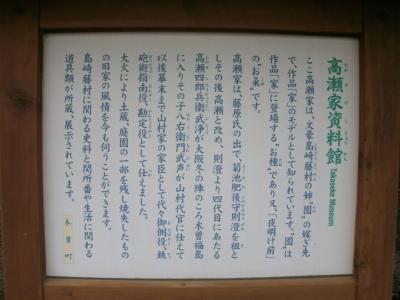 高瀬家資料館
Takaseke Museum
ここ高瀬家は、文豪島崎藤村の姉"園"の嫁ぎ先
で、作品「家」のモデルとして知られています。"園"は
作品「家」に登場する"お種"であり又、「夜明け前」
の"お粂"です。
高瀬家は、藤原氏の出で、菊池肥後守則澄を祖と
しその後高瀬と改め、則澄より四代目にあたる
高瀬四郎兵衛武浄が大阪冬の陣のころ木曽福島
に入りその子八右衛門武声が山村代官に仕えて
以後幕末まで山村家の家臣として代々御側役、鉄
砲術指南役、勘定役として仕えました。
大火により土蔵、庭園の一部を残し焼失したもの
の旧家の風情を今も伺うことができます。
島崎藤村に関わる史料と関所番や生活に関わる
道具類が所蔵、展示されています。
木曽町